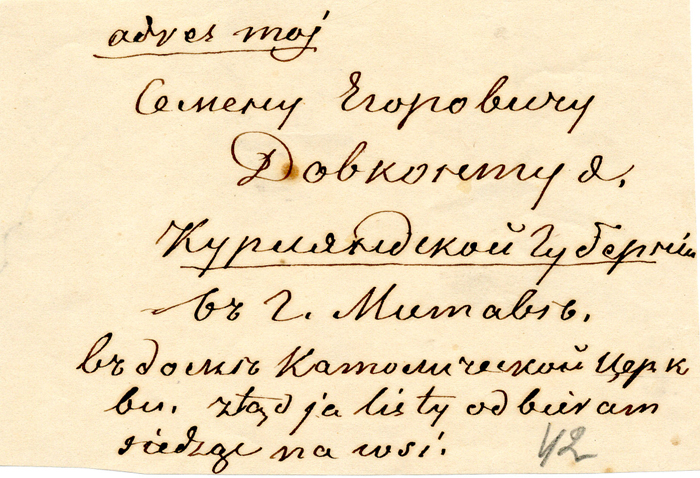 adres moj
Семену Егоровичу
Довконту я.
Курляндской Губерніи
въ г. Митавѣ.
въ домѣ Католической Церк
ви. ztąd ja listy odbieram
siedząc na wsi. 42